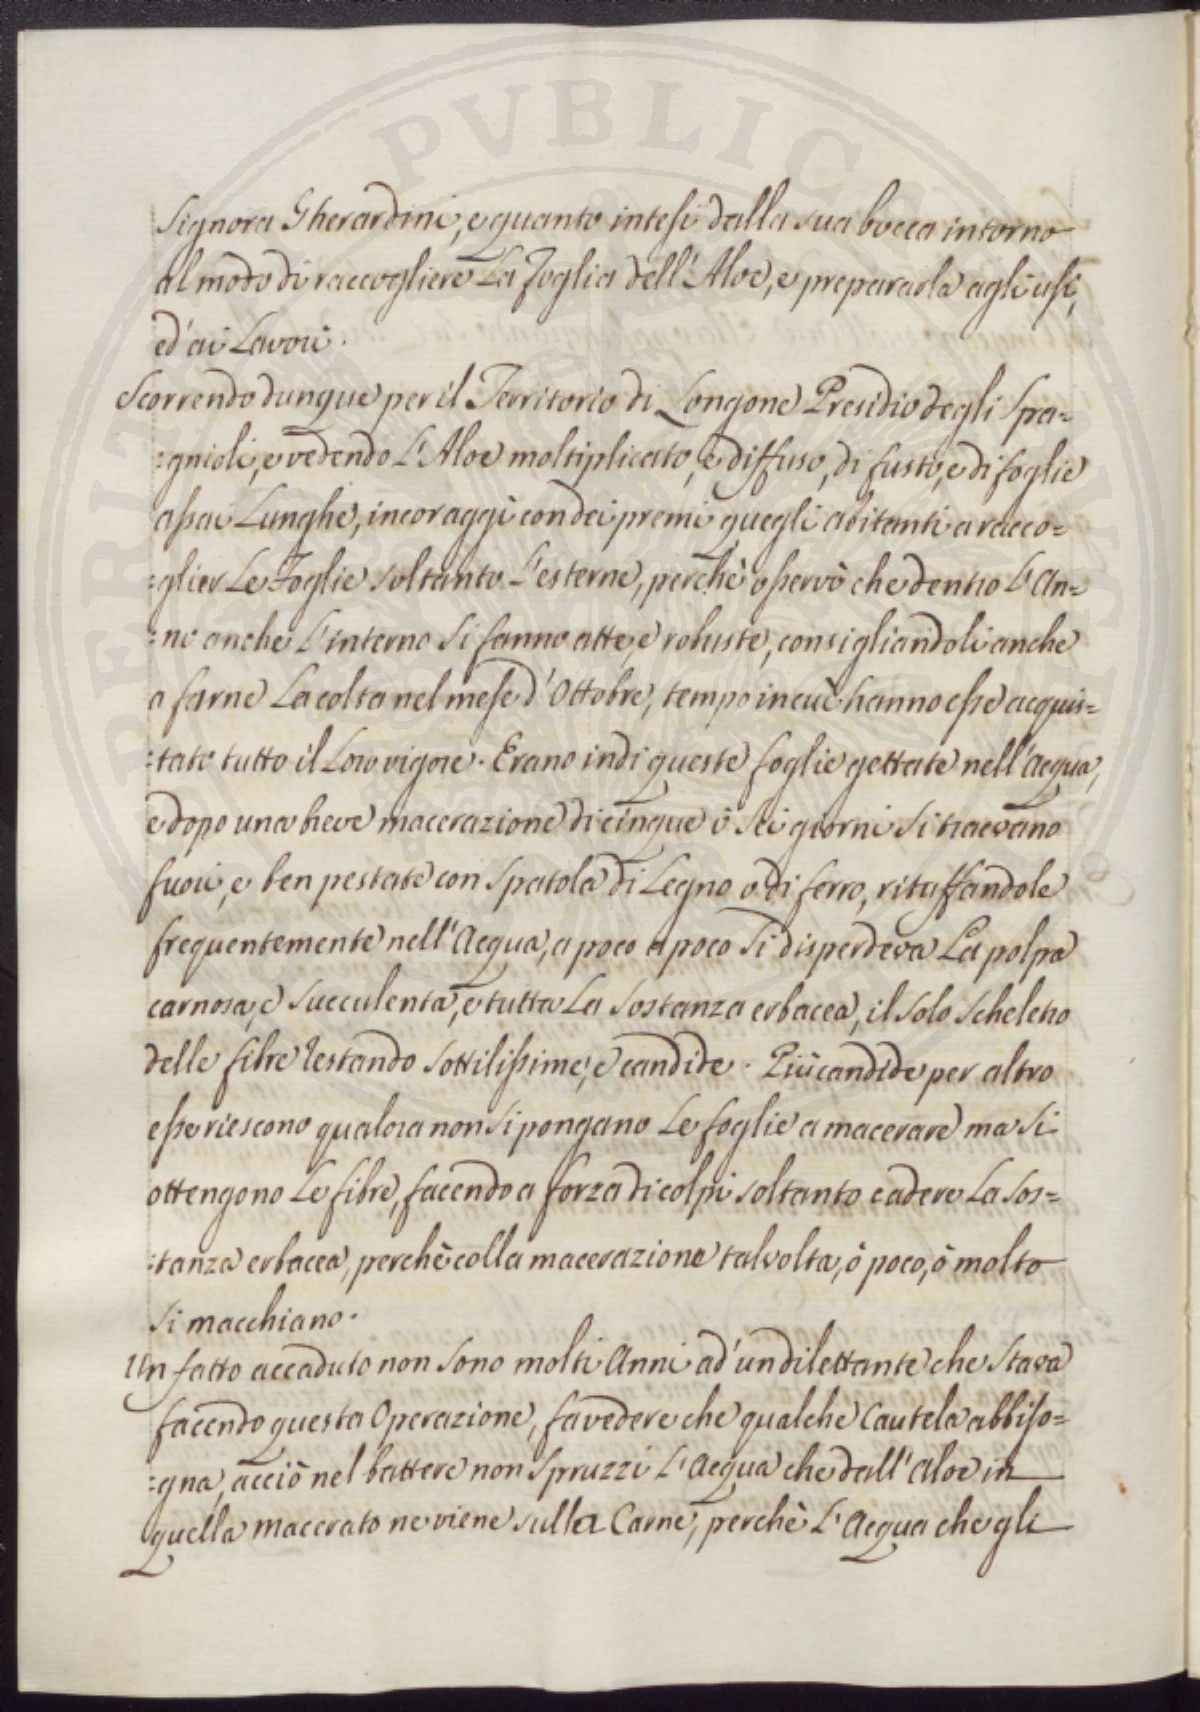 Signora Gherardini, e quanto intesi dalla sua bocca intorno
al modo di raccogliere La Foglia dell'Aloe, e prepararla agli usi,
ed'ai Lavori.
Scorrendo dunque per il Territorio di Longone Presidio degli Spa=
=gnioli, e vedendo L'Aloe moltiplicato, e diffuso, di fusto, e di foglie
assai Lunghe, incoraggì con dei premi quegli abitanti a racco=
=glier Le Foglie soltanto L'esterne, perchè osservò che dentro L'An=
=no anche L'interne si fanno atte, e robuste, consigliandoli anche
a farne La colta nel mese d'Ottobre, tempo in cui hanno esse acquis=
=tato tutto il Loro vigore. Erano indi queste foglie gettate nell'Acqua,
e dopo una breve macerazione di cinque ò sei giorni si traevano
fuori, e ben pestate con Spatola di Legno o di ferro, rituffandole
frequentemente nell'Acqua, a poco a poco si disperdeva La polpa
carnosa, e succulenta, e tutta La sostanza erbacea, il solo scheletro
delle fibre restando sottilissime, e candide. Più candide per altro
esse riescono qualora non si pongano Le foglie a macerare ma si
ottengono Le fibre, facendo a forza di colpi soltanto cadere La sos=
=tanza erbacea, perchè colla macerazione talvolta, ò poco, ò molto
si macchiano.
Un fatto accaduto non sono molti Anni ad'un dilettante che stava
facendo questa Operazione, fa vedere che qualche Cautela abbiso=
=gna, acciò nel battere non Spruzzi L'Acqua che dall'Aloe in
quella macerato ne viene sulla Carne, perchè L'Acqua che gli
PUBLIC
PERITI